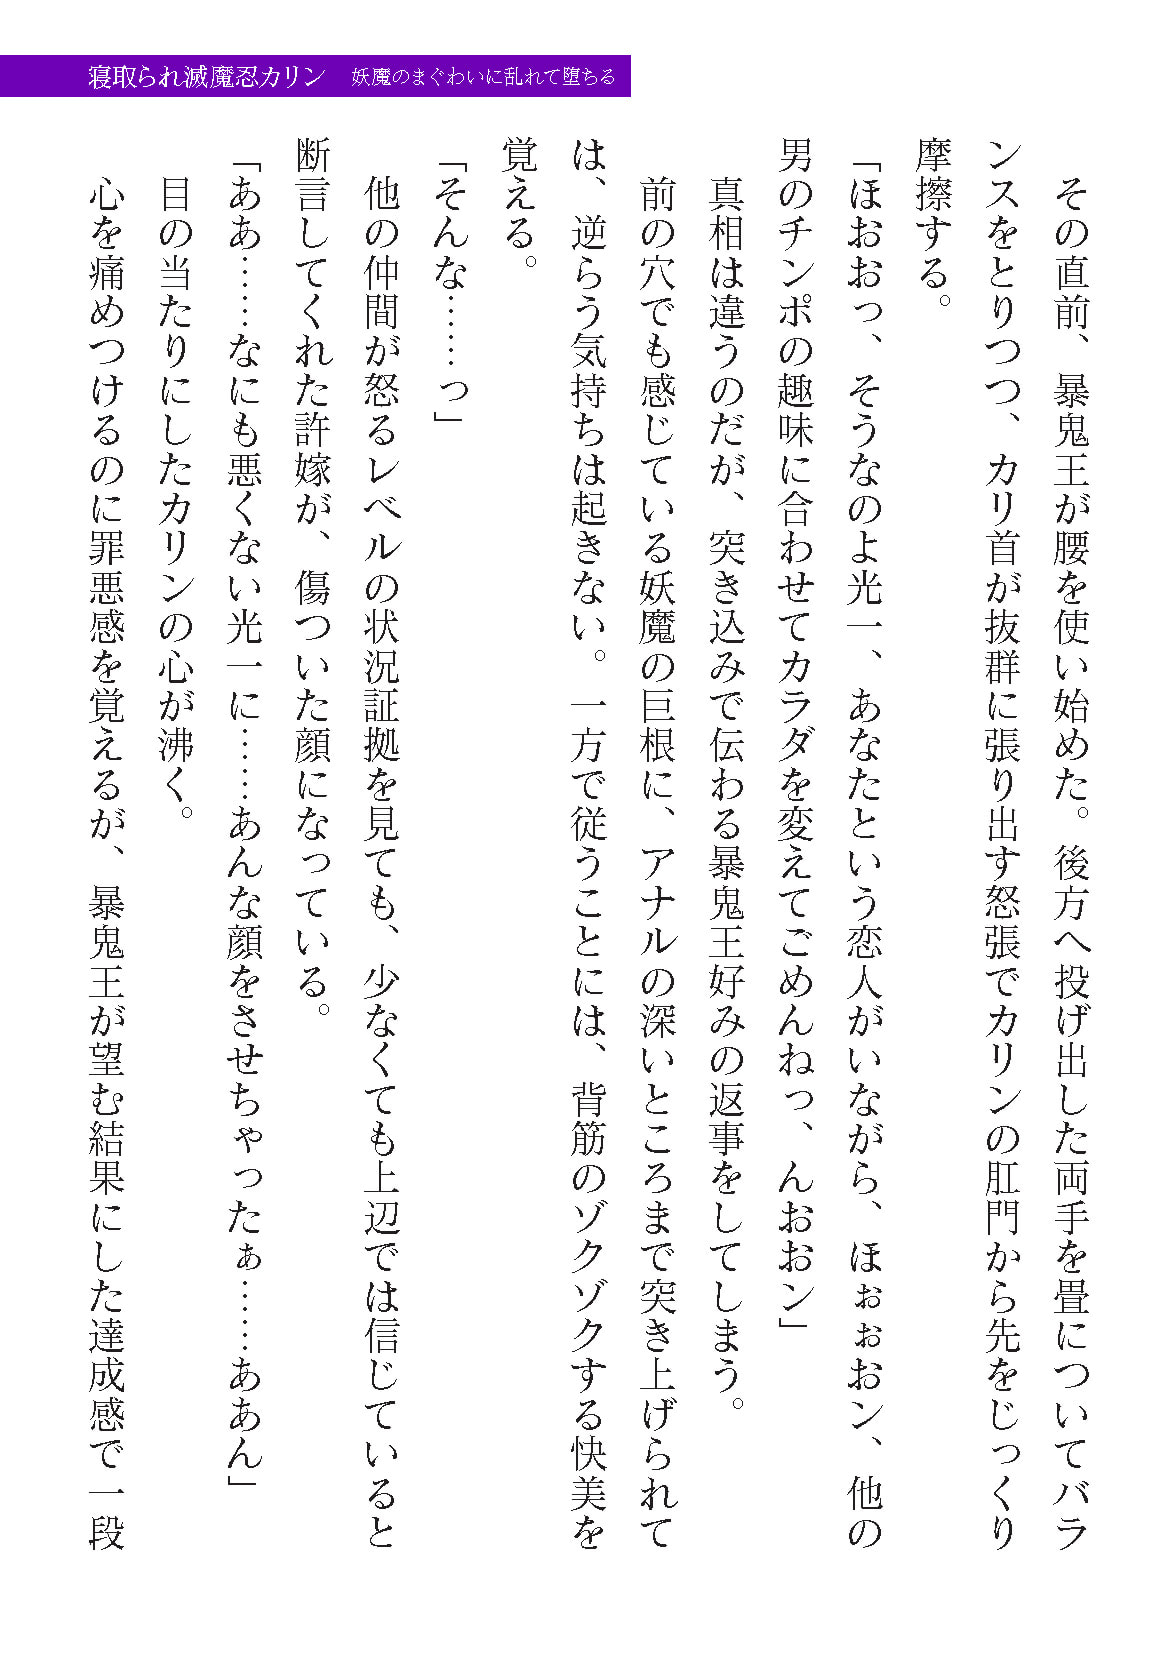 寝取られ滅魔忍カリン　妖魔のまぐわいに乱れて堕ちる
　その直前、暴鬼王が腰を使い始めた。後方へ投げ出した両手を畳についてバラ
ンスをとりつつ、カリ首が抜群に張り出す怒張でカリンの肛門から先をじっくり
摩擦する。
「ほおおっ、そうなのよ光一、あなたという恋人がいながら、ほぉぉおン、他の
男のチンポの趣味に合わせてカラダを変えてごめんねっ、んおおン」
　真相は違うのだが、突き込みで伝わる暴鬼王好みの返事をしてしまう。
　前の穴でも感じている妖魔の巨根に、アナルの深いところまで突き上げられて
は、逆らう気持ちは起きない。一方で従うことには、背筋のゾクゾクする快美を
覚える。
「そんな……っ」
　他の仲間が怒るレベルの状況証拠を見ても、少なくても上辺では信じていると
断言してくれた許嫁が、傷ついた顔になっている。
「ああ……なにも悪くない光一に……あんな顔をさせちゃったぁ……ああん」
　目の当たりにしたカリンの心が沸く。
　心を痛めつけるのに罪悪感を覚えるが、暴鬼王が望む結果にした達成感で一段